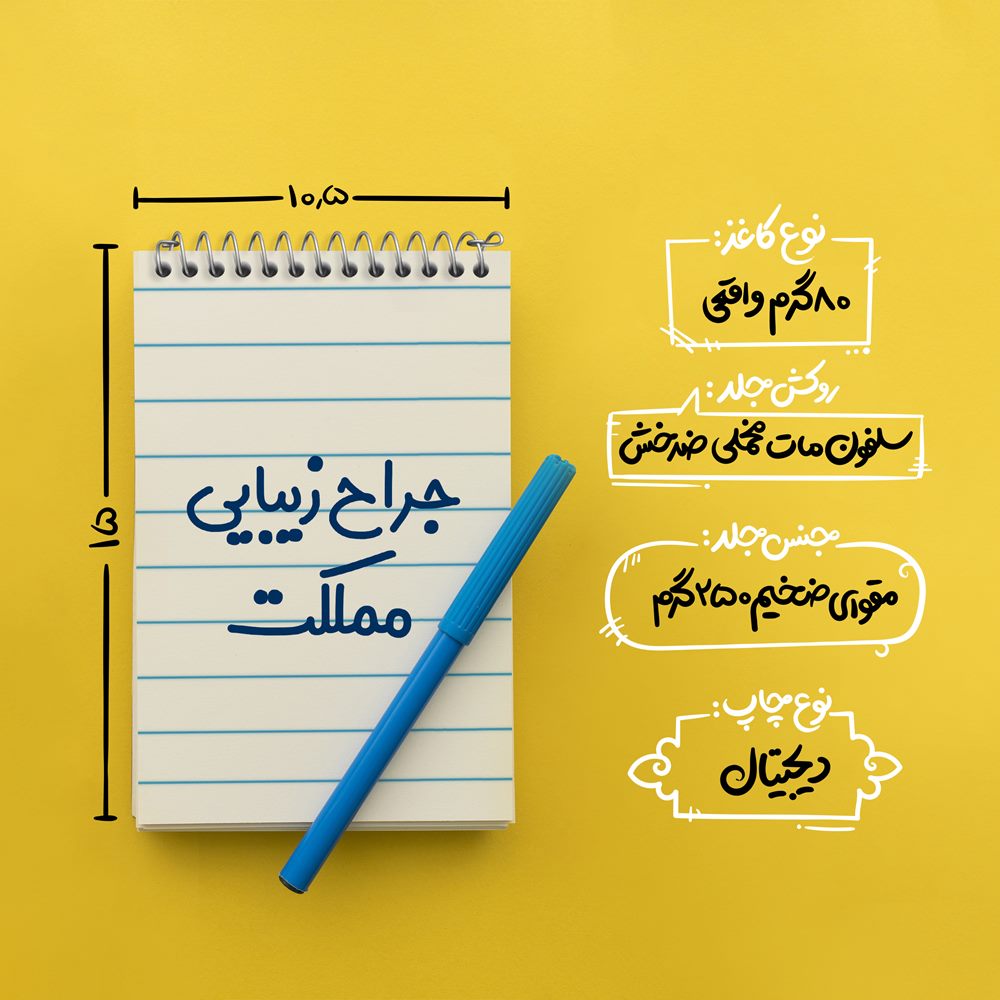 ۱۰٫۵
۱۵
جراح زیبایی
مملکت
نوع کاغذ:
۸۰گرم واقعی
روکش جلد:
سلفون مات مخملی ضدخش
جنس جلد:
مقوای ضخیم ۲۵۰گرم
نوع چاپ:
دیجیتال